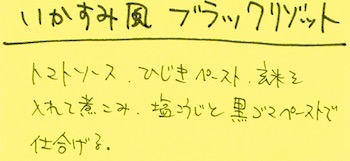 いかすみ風 ブラックリゾット
トマトソース、ひじきペースト、玄米を
入れて煮こみ、塩こうじと黒ゴマペーストで
仕上げる。